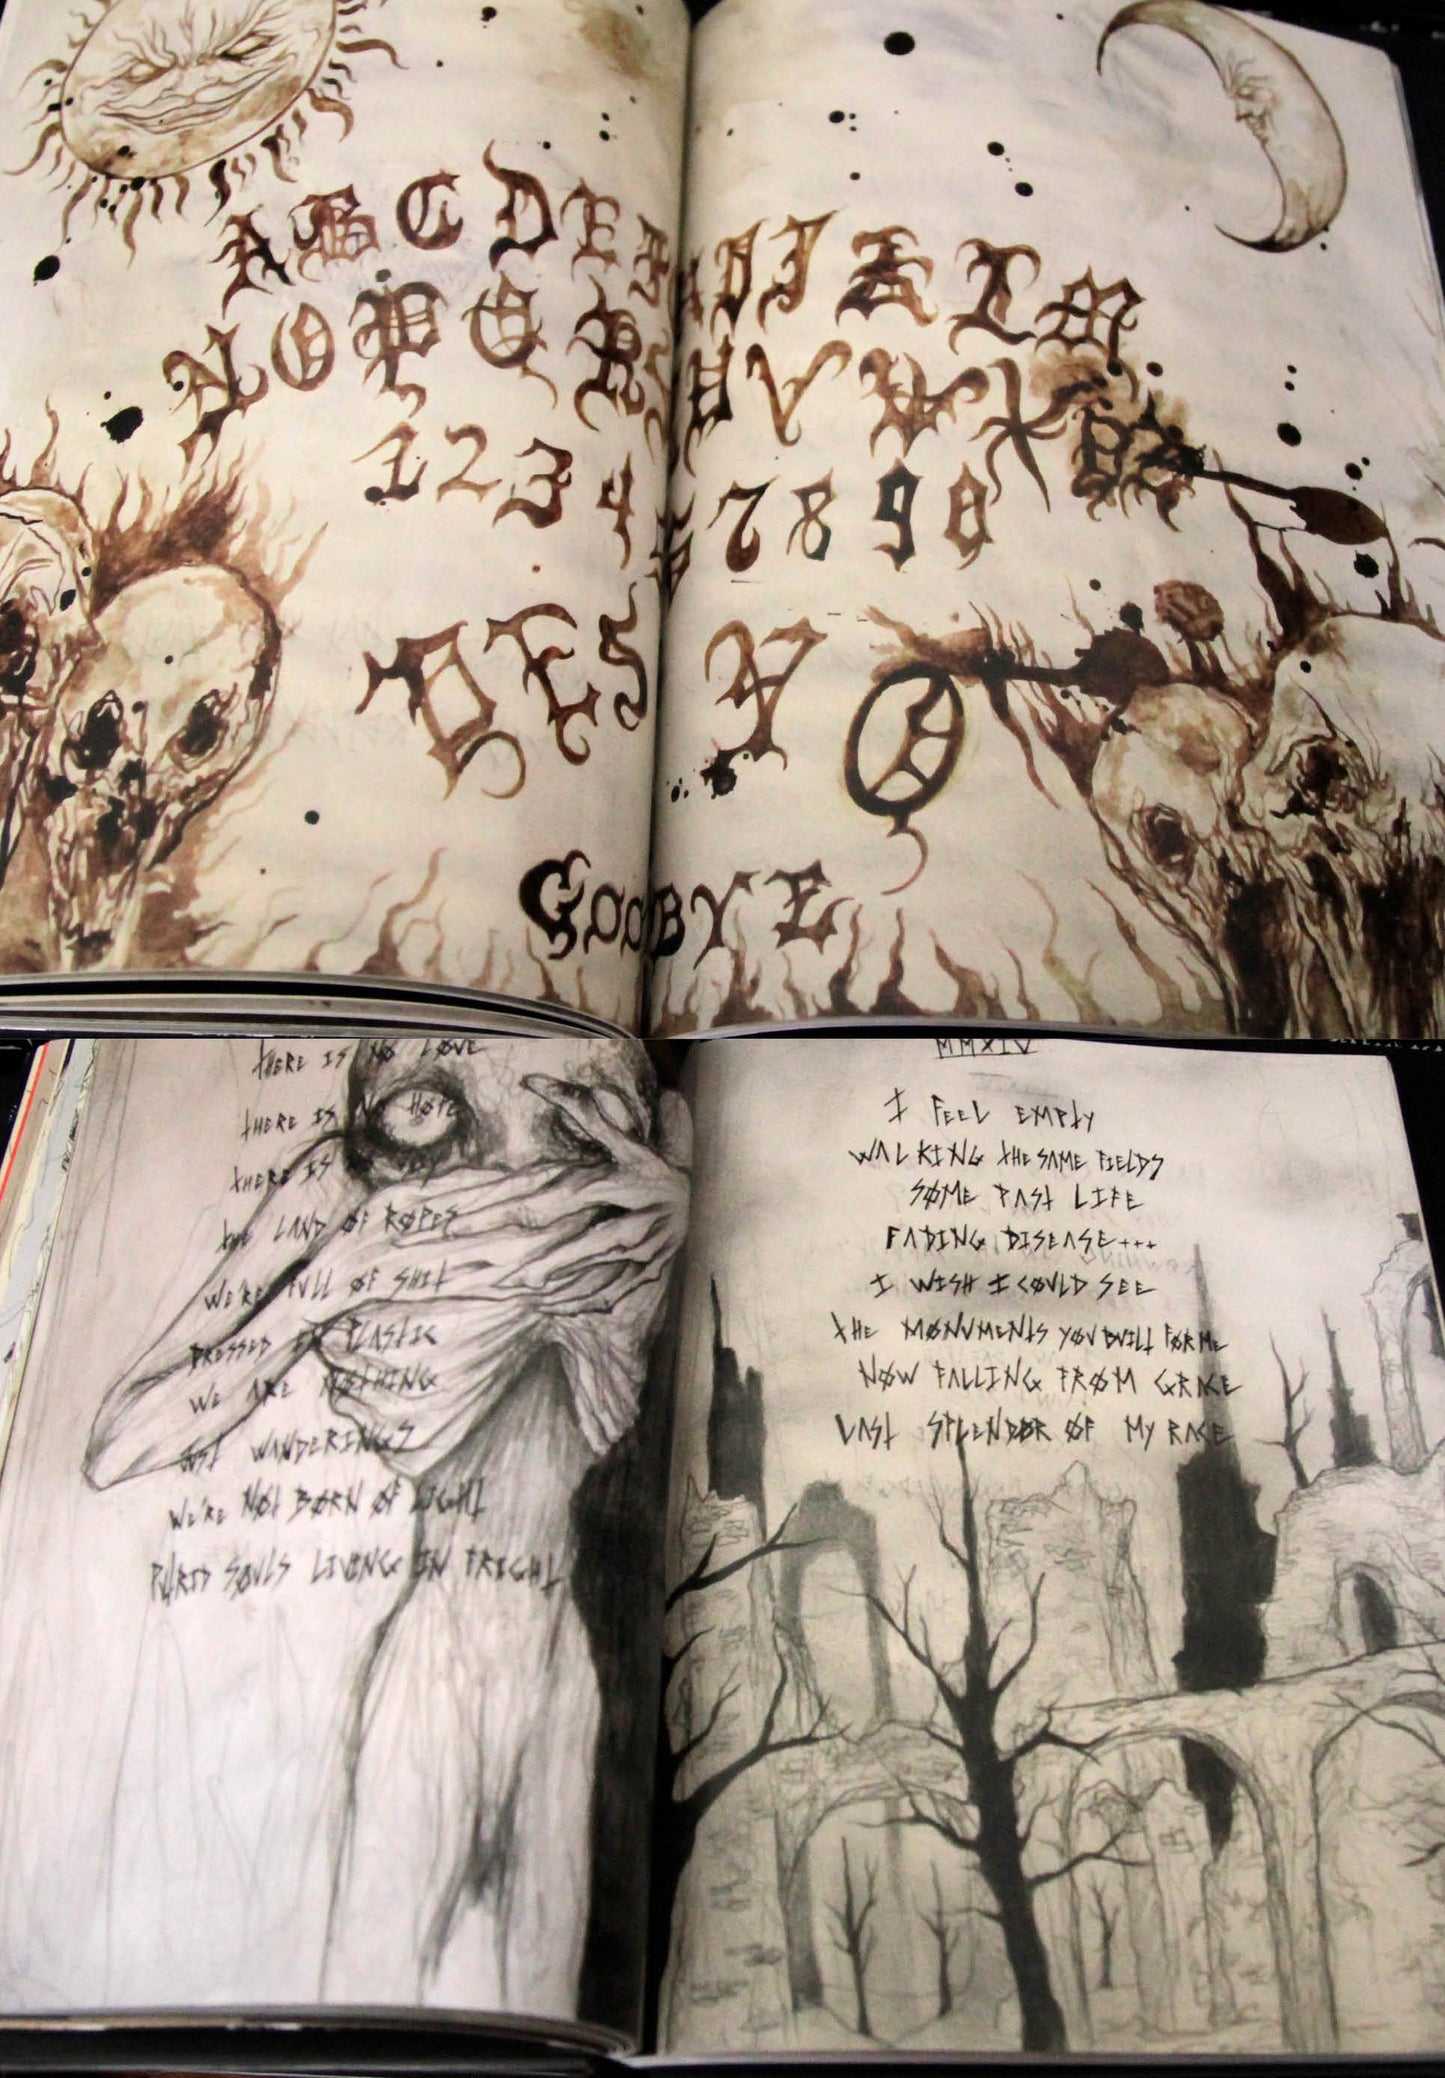 A B C D E I J K L M
N O P Q R S U V W X
1 2 3 4 7 8 9 0
GOODBYE
THERE IS NØ LØVE
THERE IS NØ HØPE
THERE IS
THE LAND ØF RØPES
WE'RE FULL ØF SHIT
DRESSED IN PLASTIC
WE ARE NØTHING
JUST WANDERINGS
WE'RE NØT BØRN ØF LIGHT
PUTRID SØULS LIVING IN FRIGHT
MMXIV
I FEEL EMPTY
WALKING THE SAME FIELDS
SØME PAST LIFE
FADING DISEASE+++
I WISH I CØULD SEE
THE MØNUMENTS YØU BUILT FØR ME
NØW FALLING FRØM GRACE
LAST SPLENDØR ØF MY RACE